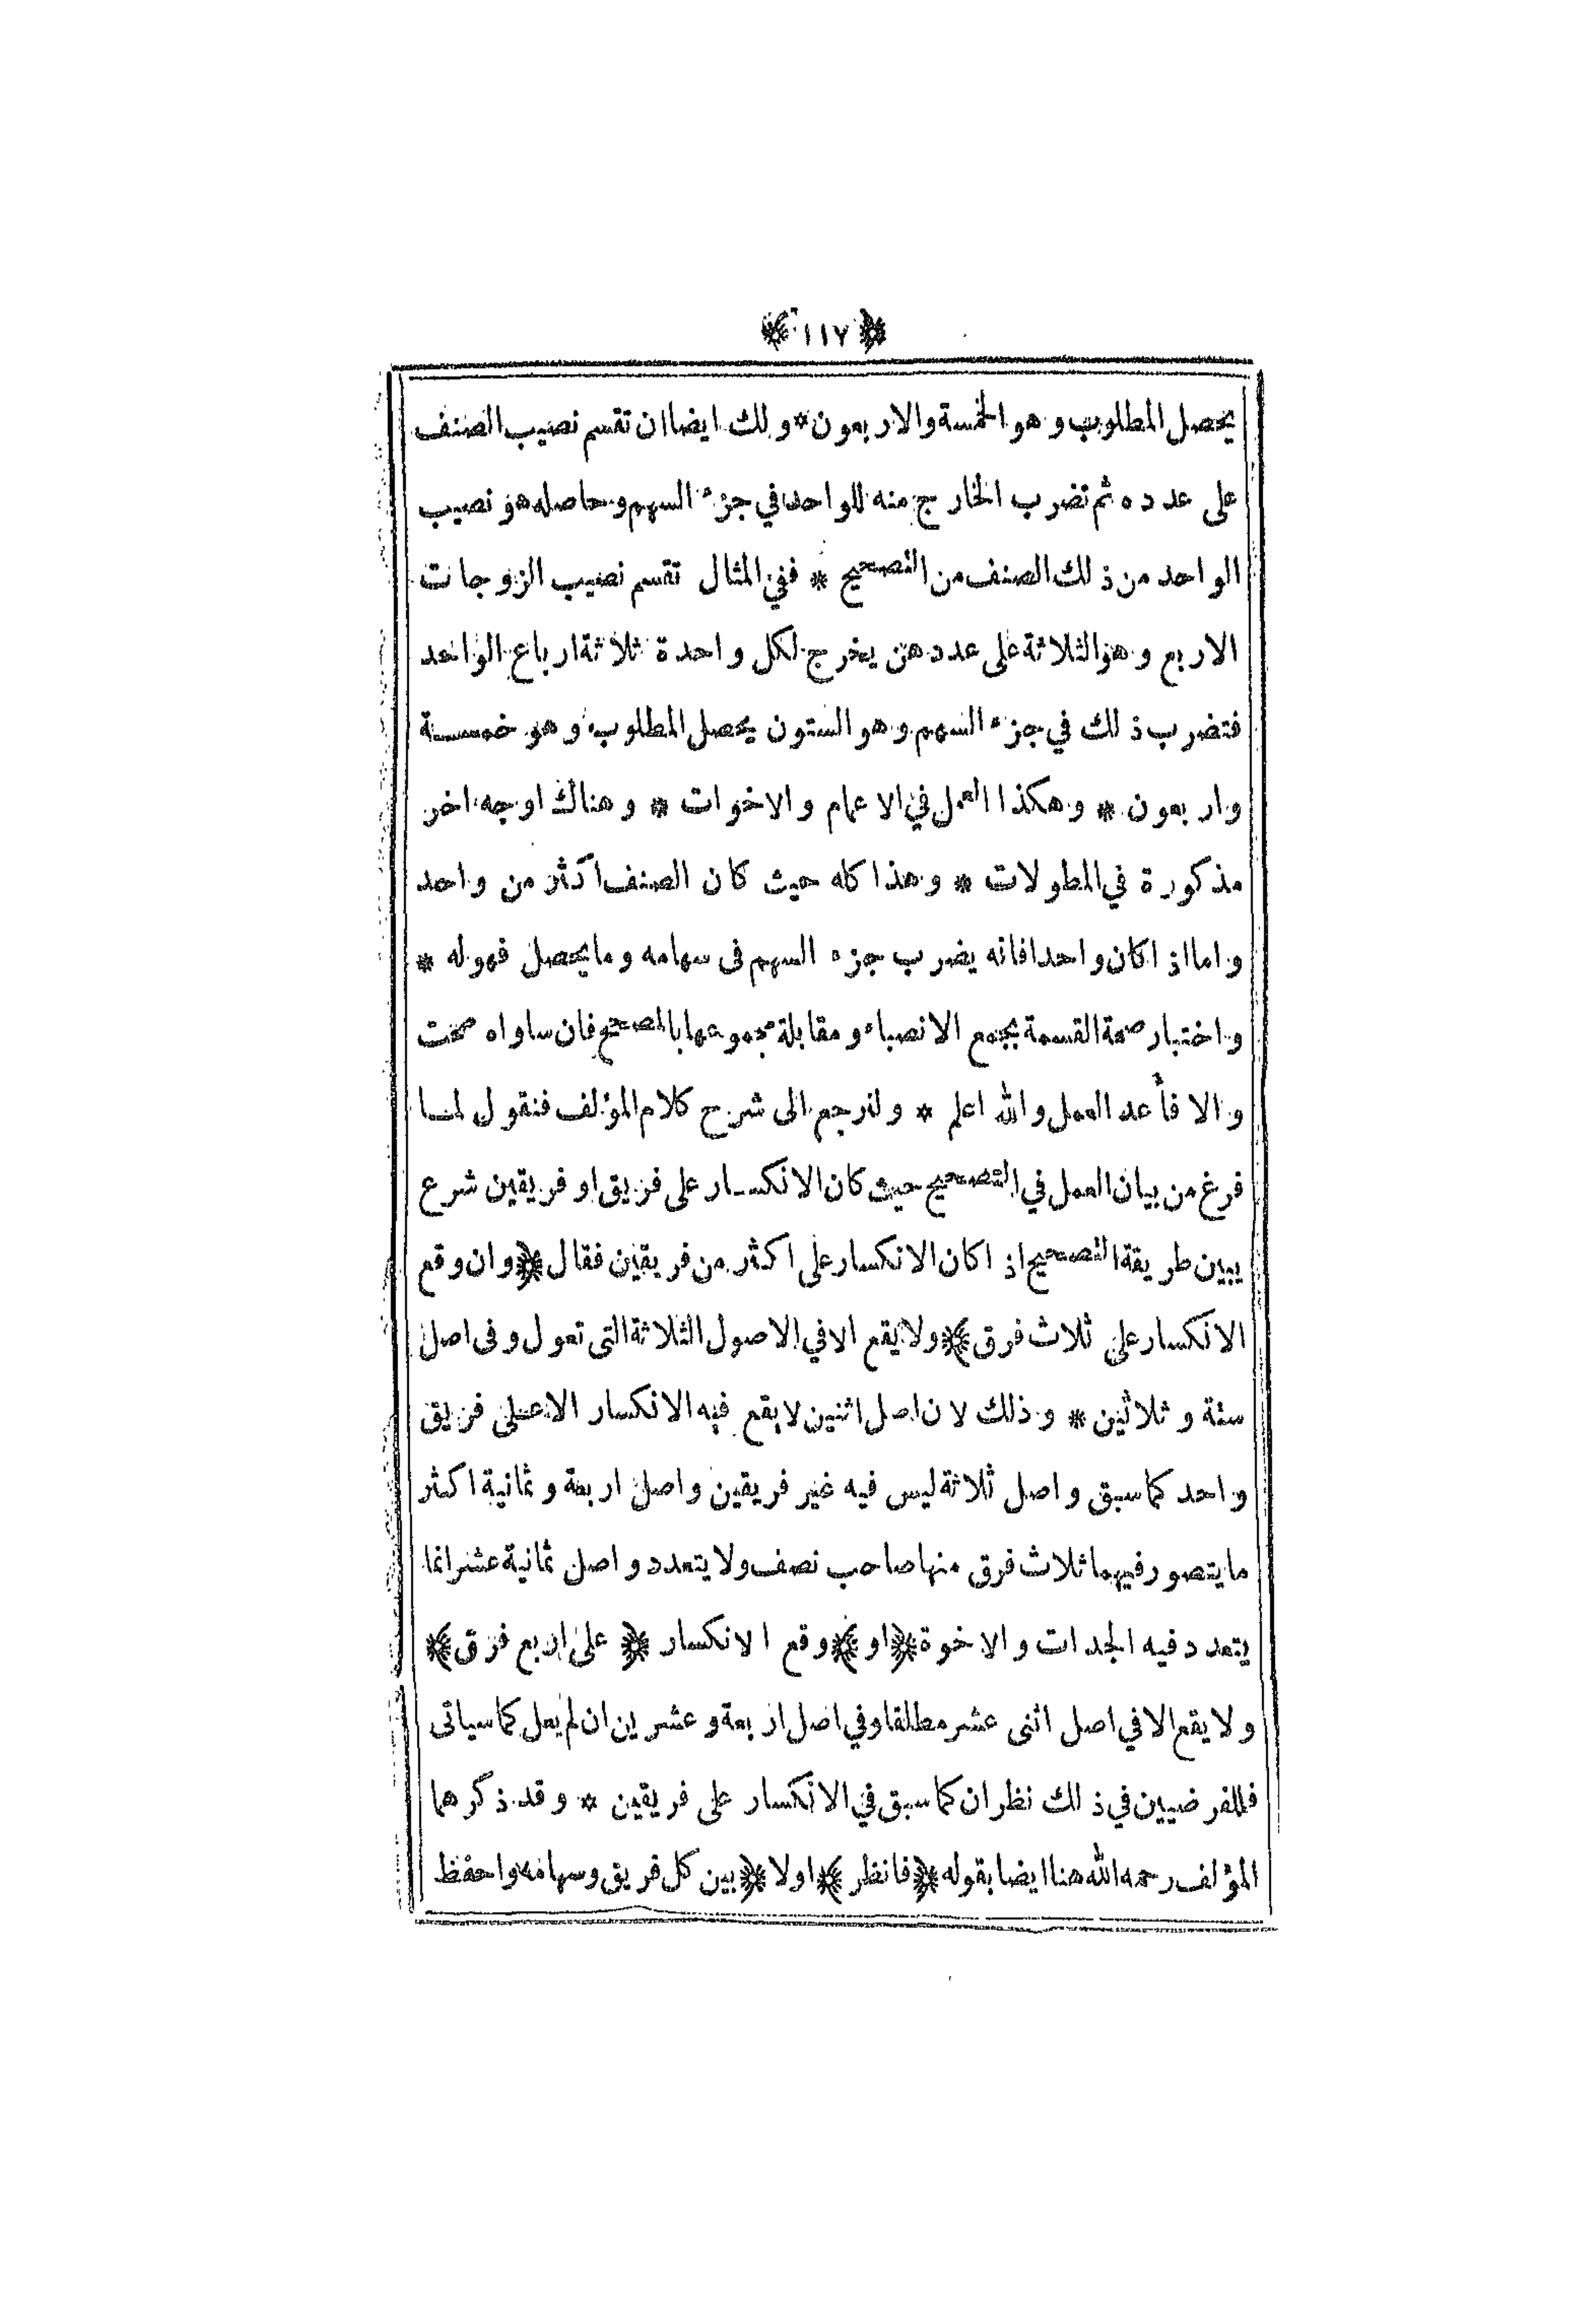 ﴿١١٧﴾
يحصل المطلوب وهو الخمسة والاربعون * ولك ايضا ان تقسم نصيب الصنف
على عدده ثم تضرب الخارج منه للواحد في جزء السهم وحاصله هو نصيب
الواحد من ذلك الصنف من التصحيح * ففي المثال تقسم نصيب الزوجات
الاربع وهو الثلاثة على عددهن يخرج لكل واحدة ثلاثة ارباع الواحد
فتضرب ذلك في جزء السهم وهو الستون يحصل المطلوب وهو خمسة
واربعون * وهكذا العمل في الاعمام والاخوات * وهناك اوجه اخر
مذكورة في المطولات * وهذا كله حيث كان الصنف اكثر من واحد
واما اذا كان واحدا فانه يضرب جزء السهم فى سهامه وما يحصل فهو له *
واختبار صحة القسمة بجمع الانصباء ومقابلة مجموعها بالمصحح فان ساواه صحت
والا فأعد العمل والله اعلم * ولنرجع الى شرح كلام المؤلف فنقول لما
فرغ من بيان العمل في التصحيح حيث كان الانكسار على فريق او فريقين شرع
يبين طريقة التصحيح اذا كان الانكسار على اكثر من فريقين فقال ﴿وان وقع
الانكسار على ثلاث فرق﴾ ولا يقع الا في الاصول الثلاثة التى تعول وفى اصل
ستة وثلاثين * وذلك لان اصل اثنين لا يقع فيه الانكسار الا على فريق
واحد كما سبق واصل ثلاثة ليس فيه غير فريقين واصل اربعة وثمانية اكثر
ما يتصور فيهما ثلاث فرق منها صاحب نصف ولا يتعدد واصل ثمانية عشر انما
يتعدد فيه الجدات والاخوة ﴿او﴾ وقع الانكسار ﴿على اربع فرق﴾
ولا يقع الا في اصل اثنى عشر مطلقا وفي اصل اربعة وعشرين ان لم يعل كما سياتى
فللفرضيين في ذلك نظران كما سبق في الانكسار على فريقين * وقد ذكرهما
المؤلف رحمه الله هنا ايضا بقوله ﴿فانظر﴾ اولا ﴿بين كل فريق وسهامه واحفظ